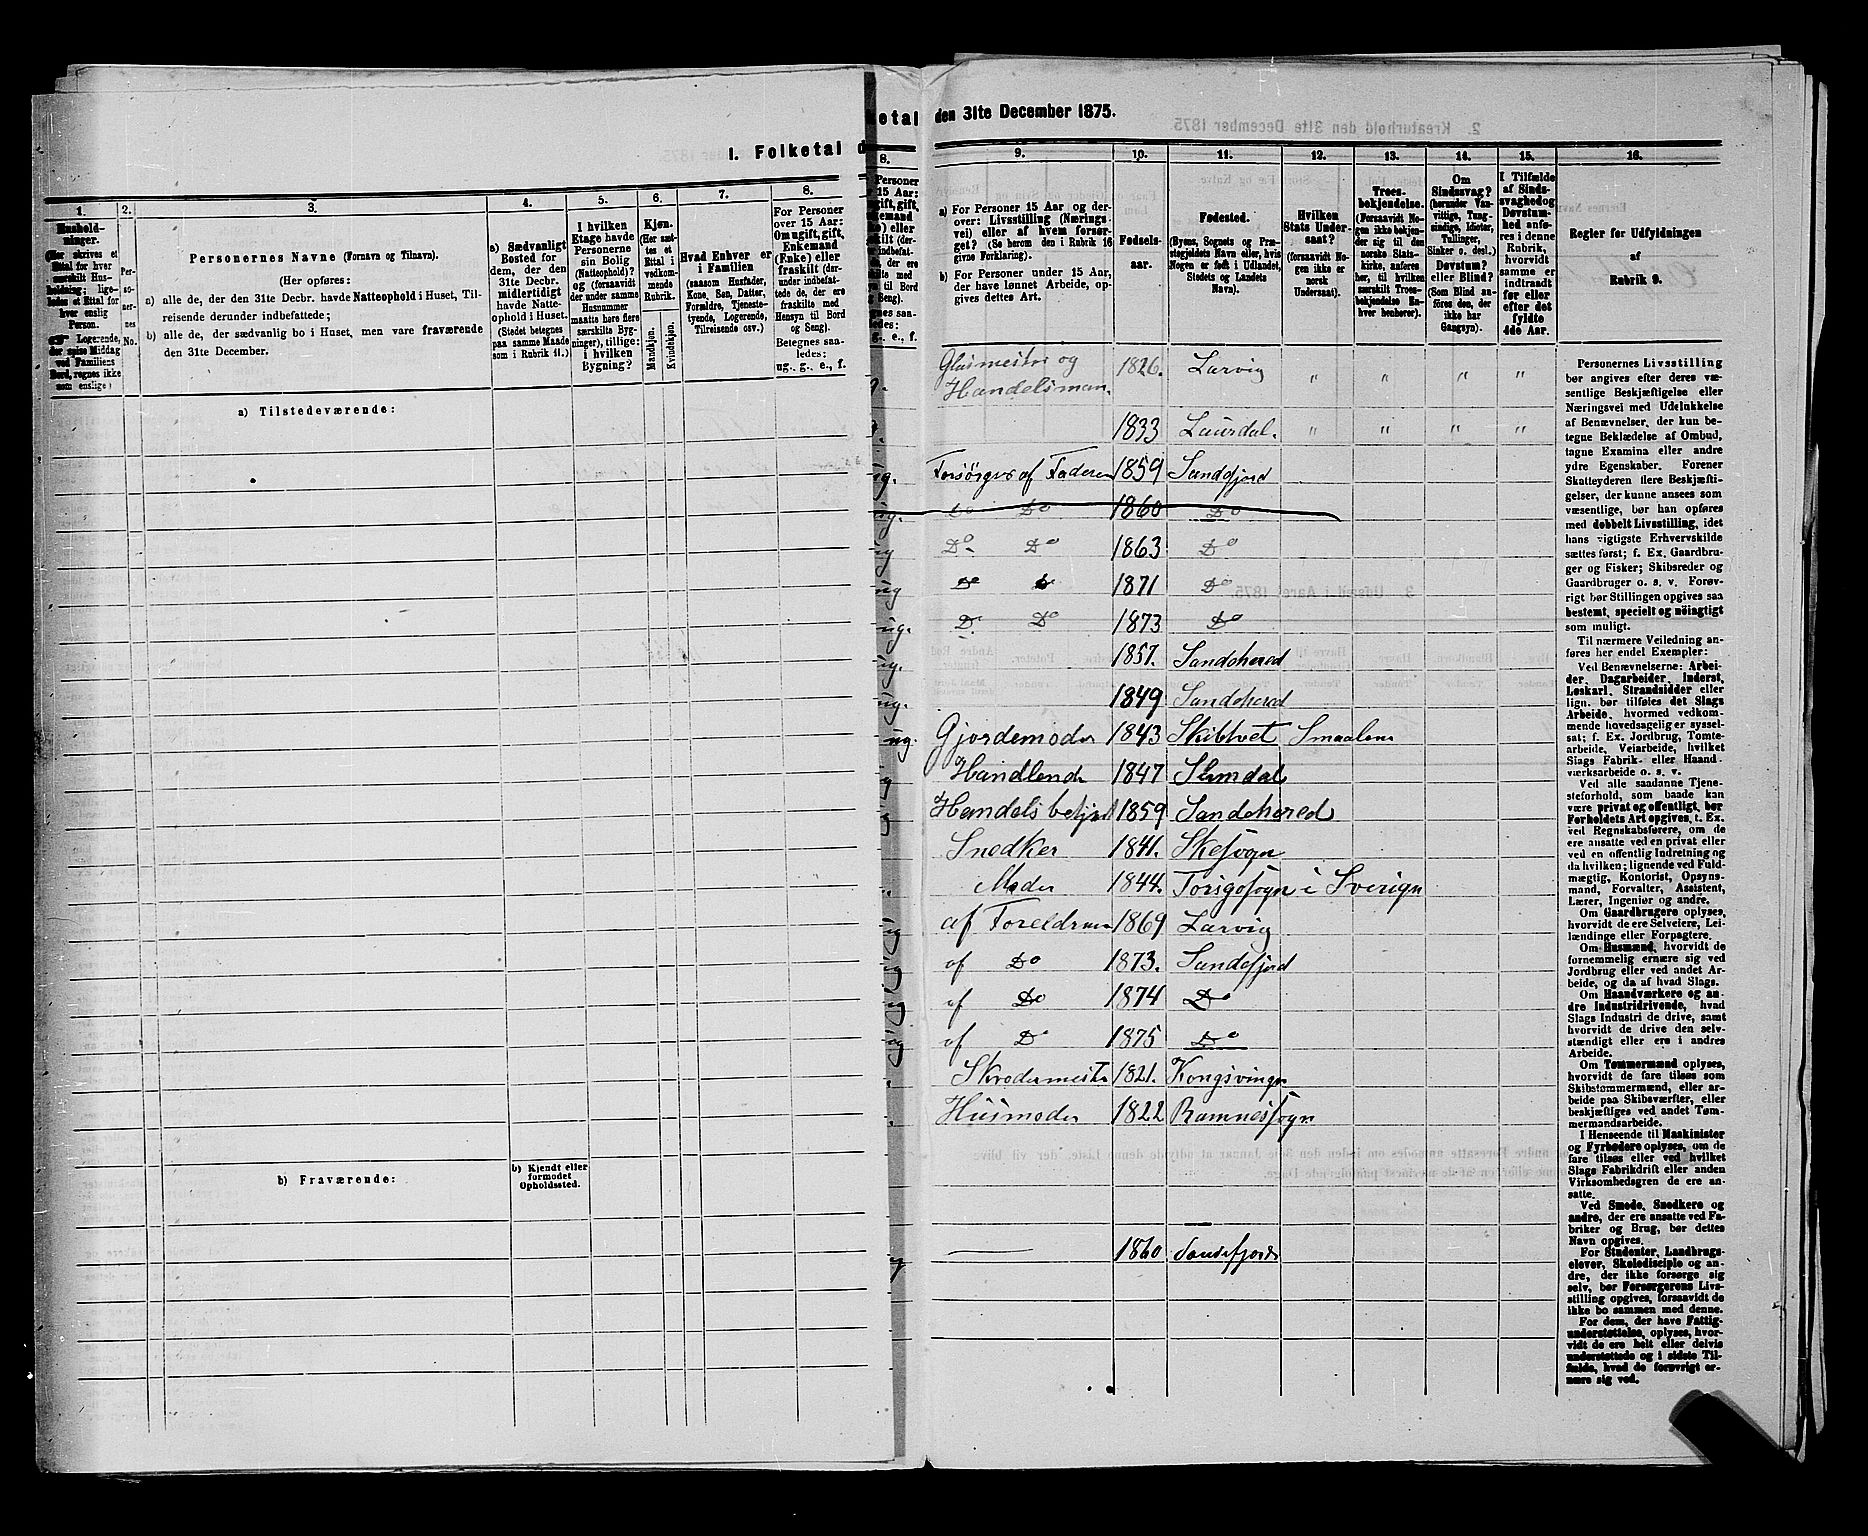 I. Folketal d
1.
2.
3.
4.
5.
6.
7.
8.
Hushold-
ninger.
(Her skrives et
Ettal for hver
særskilt Hus-
holdning; lige-
ledes et Ettal for
hver enslig
Person.
Logerende,
der spise Middag
ved Familiens
Bord, regnes ikke
som enslige.)
Per-
so-
ner-
nes
No.
Personernes Navne (Fornavn og Tilnavn).
(Her opføres:
a) alle de, der den 31te Decbr. havde Natteophold i Huset, Til-
reisende derunder indbefattede;
b) alle de, der sædvanlig bo i Huset, men vare fraværende
den 31te December.
a) Sædvanligt
Bosted for
dem, der den
31te Decbr.
midlertidigt
havde Natte-
ophold i Huset.
(Stedet betegnes
paa samme Maade
som i Rubrik 11.)
I hvilken
Etage havde
Personerne
sin Bolig
(Natteophold)?
og (forsaavidt
der under samme
Husnummer
maatte høre flere
særskilte Byg-
ninger), tillige:
i hvilken
Bygning?
Kjøn.
(Her sæt-
tes et
Ettal i
vedkom-
mende
Rubrik.
Mandkjøn.
Kvindekjøn.
Hvad Enhver er
i Familien
(saasom Husfader,
Kone, Søn, Datter,
Forældre, Tjeneste-
tyende, Logerende,
Tilreisende osv.)
For Personer
over 15 Aar:
Om ugift, gift,
Enkemand
(Enke) eller
fraskilt (der-
under indbefat-
tede de, der ere
fraskilte med
Hensyn til Bord
og Seng).
Betegnes saa-
ledes:
ug., g., e., f.
a) Tilstedeværende:
b) Fraværende:
b) Kjendt eller
formodet
Opholdssted.
etal
den 31te December 1875.
8.
9.
10.
11.
12.
13.
14.
15.
16.
a) For Personer 15 Aar og der-
over: Livsstilling (Nærings-
vei) eller af hvem forsør-
get? (Se herom den i Rubrik 16
givne Forklaring).
b) For Personer under 15 Aar,
der have lønnet Arbeide, op-
gives dettes Art.
Fødsels-
aar.
Fødested.
(Byens, Sognets og Præ-
stegjeldets Navn eller, hvis
Nogen er født i Udlandet,
Stedets og Landets
Navn).
Hvilken
Stats Under-
saat?
(forsaavidt No-
gen ikke er
norsk
Undersaat).
Troes-
bekjendelse.
(Forsaavidt No-
gen ikke bekjen-
der sig til den
norske Stats-
kirke, anføres
her, til hvilken
særskilt Troes-
bekjendelse En-
hver henhører).
Om
Sindssvag?
(herunder Van-
vittige, Tung-
sindige, Idioter,
Tullinger,
Sinker o. desl.)
Døvstum?
eller Blind?
(Som Blind an-
føres den, der
ikke har
Gangsyn).
I Tilfælde
af Sinds-
svaghed og
Døvstum-
hed anfø-
res i denne
Rubrik,
hvorvidt
samme er
indtraadt
før eller
efter det
fyldte
4de Aar.
Regler for Udfyldningen
af
Rubrik 9.
Glasmester og
Handelsman. 1826. Larvig " " " "
1833 Laurdal. " " " "
ug. Forsørges af Faderen 1859 Sandefjord
ug. Do Do 1860 Do
ug Do Do 1863 Do
ug Do Do 1871 Do
ug. Do Do 1873 Do
ug. 1857. Sandehered
ug. 1849 Sandehered
ug. Gjordemoder 1843 Skibtvet Smaalene
og Handlende 1847
Handelsbetjent 1859 Sandehered
Snedker 1841. Skesogn
Moder 1844. Torsgosogn i Sverige
af Foreldrene 1869 Larvig
af Do 1873. Sandefjord
af Do 1874 Do
af Do 1875 Do
Skrædermester 1821. Kongsvinger
Husmoder 1822 Ramnes sogn
1860 Sandefjord
Personernes Livsstilling
bør angives efter deres væ-
sentlige Beskjæftigelse eller
Næringsvei med Udelukkelse
af Benævnelser, der kun be-
tegne Beklædelse af Ombud,
tagne Examina eller andre
ydre Egenskaber. Forener
Skatteyderen flere Beskjæfti-
gelser, der kunne ansees som
væsentlige, bør han opføres
med dobbelt Livsstilling, idet
hans vigtigste Erhvervskilde
sættes først; f. Ex. Gaardbru-
ger og Fisker; Skibsreder og
Gaardbruger o. s. v. Forøv-
rigt bør Stillingen opgives saa
bestemt, specielt og nöiagtigt
som muligt.
Til nærmere Veiledning an-
føres her endel Exempler:
Ved Benævnelserne: Arbei-
der, Dagarbeider, Inderst,
Løskarl, Strandsidder eller
lign. bør tilføies det Slags
Arbeide, hvormed vedkom-
mende hovedsagelig er syssel-
sat; f. Ex. Jordbrug, Tomte-
arbeide, Veiarbeide, hvilket
Slags Fabrik- eller Haand-
værksarbeide o. s. v.
Ved alle saadanne Tjene-
steforhold, som baade kan
være privat og offentligt, bør
Forholdets Art opgives, t. Ex.
ved Regnskabsførere, om de
ere ansatte ved en privat eller
ved en offentlig Indretning og
da hvilken; lignende ved Fuld-
mægtig, Kontorist, Opsyns-
mand, Forvalter, Assistent,
Lærer, Ingeniør og andre.
Om Gaardbrugere oplyses,
hvorvidt de ere Selveiere, Lei-
lændinge eller Forpagtere.
Om Husmænd, hvorvidt de
fornemmelig ernære sig ved
Jordbrug eller ved andet Ar-
beide, og da af hvad Slags.
Om Haandværkere og an-
dre Industridrivende, hvad
Slags Industri de drive, samt
hvorvidt de drive den selv-
stændigt eller ere i andres
Arbeide.
Om Tømmermænd oplyses,
hvorvidt de fare tilsøs som
Skibstømmermænd, eller ar-
beide paa Skibsværfter, eller
beskjæftiges ved andet Tøm-
mermandsarbeide.
I Henseende til Maskinister
og Fyrbødere oplyses, om de
fare tilsøs eller ved hvilket
Slags Fabrikdrift eller anden
Virksomhedsgren de ere an-
satte.
Ved Smede, Snedkere og
andre, der ere ansatte ved Fa-
briker og Brug, bør dettes
Navn opgives.
For Studenter, Landbrugs-
elever, Skoledisciple og an-
dre, der ikke forsørge sig
selv, bør Forsørgerens Livs-
stilling opgives, forsaavidt de
ikke bo sammen med denne.
For dem, der have Fattig-
understøttelse, oplyses, hvor-
vidt de ere helt eller delvis
understøttede og i sidste Til-
fælde, hvad de forøvrigt er-
nære sig ved.